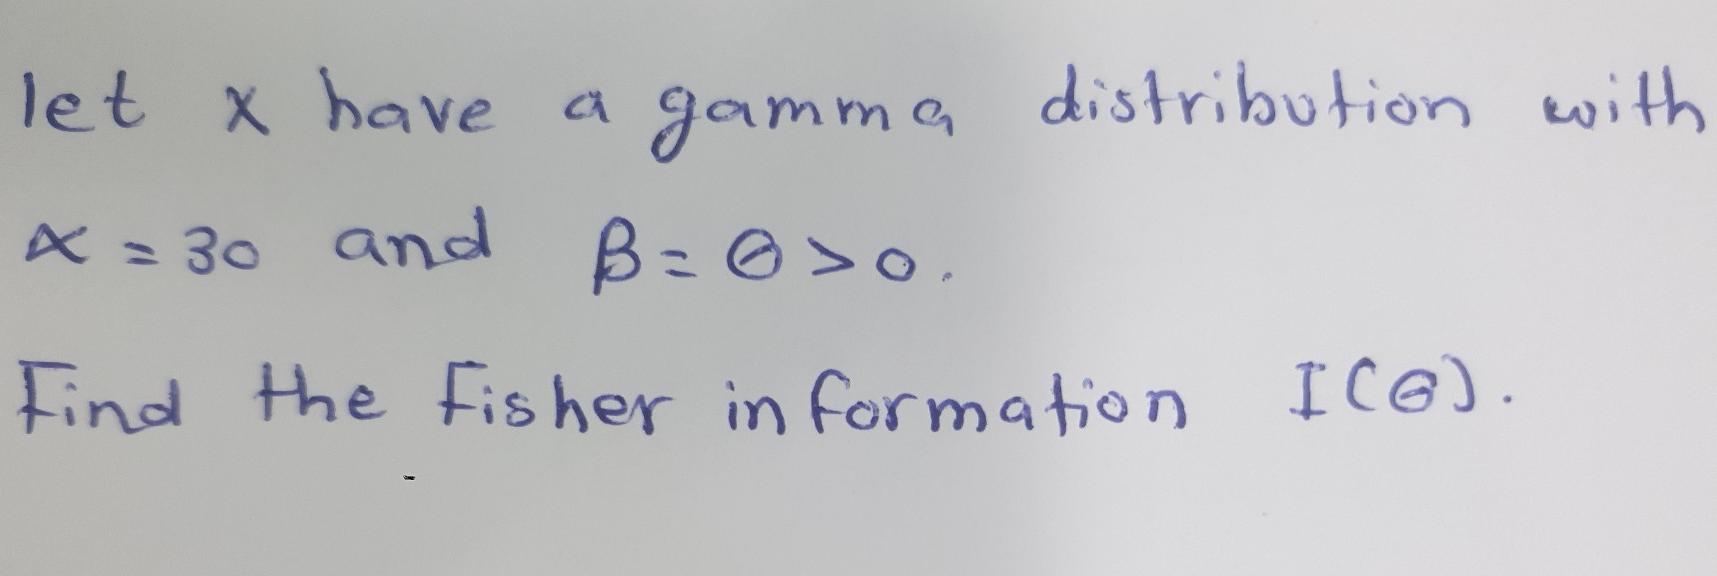 let x have a gamma distribution with
α = 30 and β = θ > 0.
Find the Fisher information I(θ).